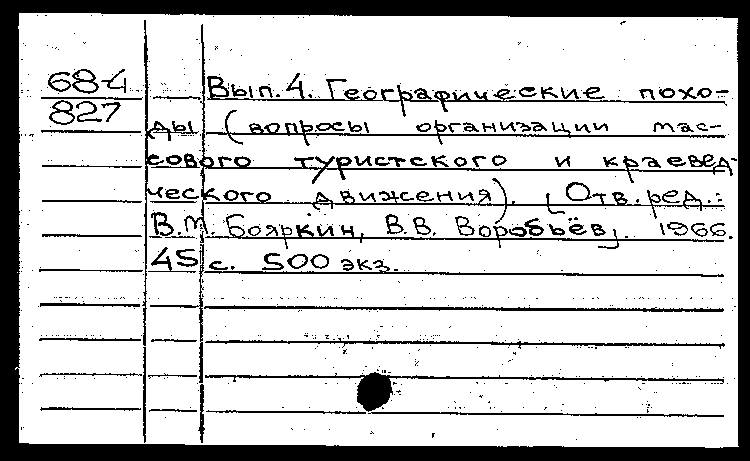 68-4 Вып. 4. Географические похо-
827 ды (вопросы организации мас-
сового туристского и краевед-
ческого движения). [Отв. ред.:
В.М. Бояркин, В.В. Воробьёв]. 1966.
45 с. 500 экз.